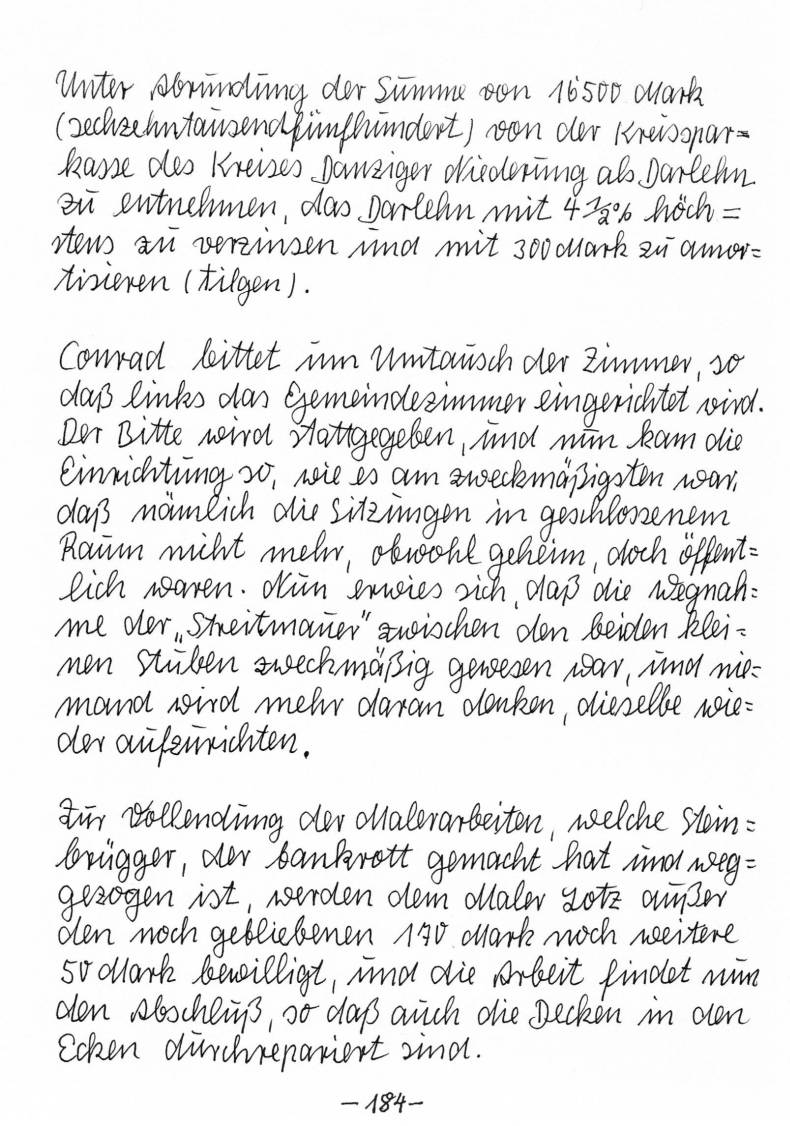 Unter Abrundung der Summe von 16500 Mark
(sechzehntausendfünfhundert) von der Kreisspar=
kasse des Kreises Danziger Niederung als Darlehn
zu entnehmen, das Darlehn mit 4 1/2% höch=
stens zu verzinsen und mit 300 Mark zu amor=
tisieren (tilgen).

Conrad bittet um Umtausch der Zimmer, so
daß links das Gemeindezimmer eingerichtet wird.
Der Bitte wird stattgegeben, und nun kam die
Einrichtung so, wie es am zweckmäßigsten war,
daß nämlich die Sitzungen in geschlossenem
Raum nicht mehr, obwohl geheim, doch öffent=
lich waren. Nun erwies sich, daß die Wegnah=
me der „Streitmauer" zwischen den beiden klei=
nen Stuben zweckmäßig gewesen war, und nie=
mand wird mehr daran denken, dieselbe wie=
der aufzurichten.

Zur Vollendung der Malerarbeiten, welche Stein=
brügger, der bankrott gemacht hat und weg=
gezogen ist, werden dem Maler Lotz außer
den noch gebliebenen 170 Mark noch weitere
50 Mark bewilligt, und die Arbeit findet nun
den Abschluß, so daß auch die Decken in den
Ecken durchrepariert sind.

- 184 -